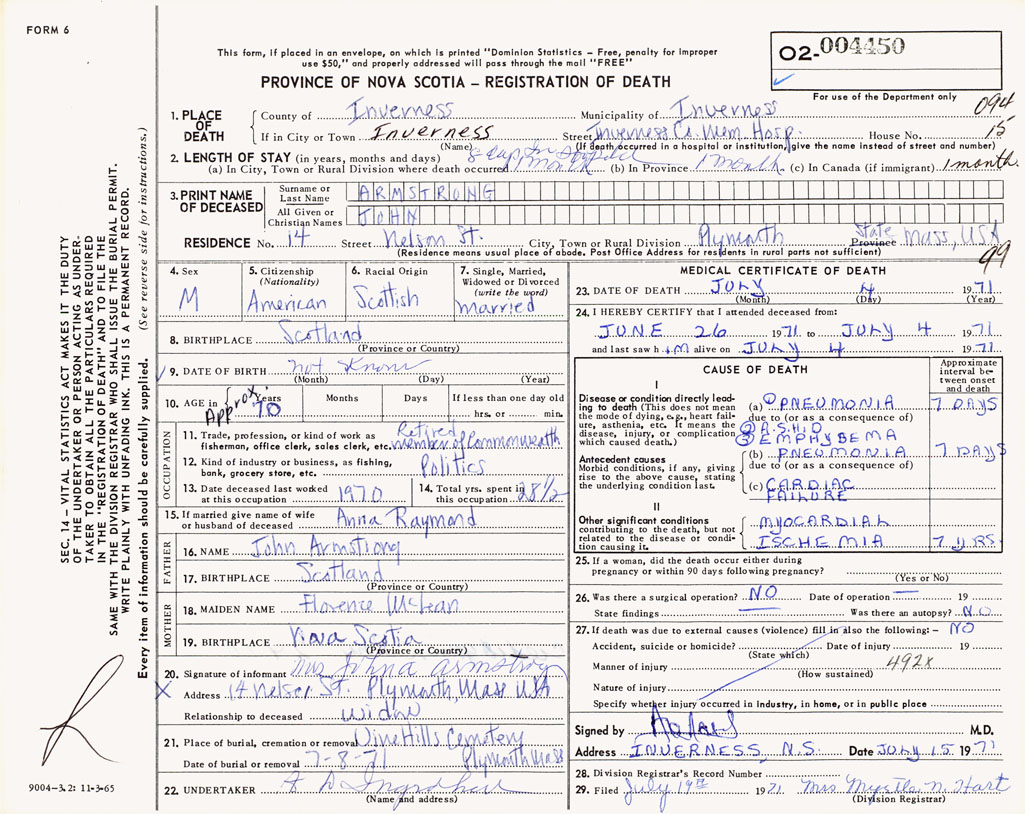 FORM 6
This form, if placed in an envelope, on which is printed "Dominion Statistics – Free, penalty for improper
use $50," and properly addressed will pass through the mail "FREE"
02-004450
PROVINCE OF NOVA SCOTIA – REGISTRATION OF DEATH
For use of the Department only
094
1. PLACE OF DEATH County of Inverness Municipality of Inverness
If in City or Town Inverness Street Inverness Co. Mem. Hosp. House No. 15
(Name) (If death occurred in a hospital or institution, give the name instead of street and number)
2. LENGTH OF STAY (in years, months and days) 8 days in hospital
(a) In City, Town or Rural Division where death occurred 1 month (b) In Province 1 month (c) In Canada (if immigrant) 1 month.
3. PRINT NAME OF DECEASED Surname or Last Name ARMSTRONG
All Given or Christian Names JOHN
RESIDENCE No. 14 Street Nelson St. City, Town or Rural Division Plymouth State Province Mass, USA
(Residence means usual place of abode. Post Office Address for residents in rural parts not sufficient)
99
4. Sex M
5. Citizenship (Nationality) American
6. Racial Origin Scottish
7. Single, Married, Widowed or Divorced (write the word) Married
8. BIRTHPLACE Scotland
(Province or Country)
9. DATE OF BIRTH not Know
(Month) (Day) (Year)
10. AGE in Years Months Days If less than one day old
Approx. 70 hrs. or min.
OCCUPATION
11. Trade, profession, or kind of work as Retired
fisherman, office clerk, sales clerk, etc. member of Commonwealth
12. Kind of industry or business, as fishing, bank, grocery store, etc. Politics
13. Date deceased last worked at this occupation 1970
14. Total yrs. spent in this occupation 28 1/2
15. If married give name of wife or husband of deceased Anna Raymond
FATHER
16. NAME John Armstrong
17. BIRTHPLACE Scotland
(Province or Country)
MOTHER
18. MAIDEN NAME Florence McLean
19. BIRTHPLACE Nova Scotia
(Province or Country)
20. Signature of informant Mrs John A Armstrong
X Address 14 Nelson St. Plymouth, Mass USA
Relationship to deceased widow
21. Place of burial, cremation or removal Vine Hills Cemetery
Date of burial or removal 7-8-71 Plymouth Mass
22. UNDERTAKER
(Name and address)
MEDICAL CERTIFICATE OF DEATH
23. DATE OF DEATH JULY 4 1971
(Month) (Day) (Year)
24. I HEREBY CERTIFY that I attended deceased from:
JUNE 26 1971 to JULY 4 1971
and last saw him alive on JULY 4 1971
CAUSE OF DEATH
Approximate interval between onset and death
I
Disease or condition directly leading to death (This does not mean the mode of dying, e.g., heart failure, asthenia, etc. It means the disease, injury, or complication which caused death.)
(a) ① PNEUMONIA 7 DAYS
due to (or as a consequence of)
② A.S.H.D
③ EMPHYSEMA
Antecedent causes
Morbid conditions, if any, giving rise to the above cause, stating the underlying condition last.
(b) PNEUMONIA 7 DAYS
due to (or as a consequence of)
(c) CARDIAC
FAILURE
II
Other significant conditions
contributing to the death, but not related to the disease or condition causing it.
MYOCARDIAL
ISCHEMIA 7 YRS
25. If a woman, did the death occur either during
pregnancy or within 90 days following pregnancy?
(Yes or No)
26. Was there a surgical operation? NO Date of operation — 19
State findings — Was there an autopsy? NO
27. If death was due to external causes (violence) fill in also the following: – NO
Accident, suicide or homicide? Date of injury 19
(State which)
Manner of injury 492X
(How sustained)
Nature of injury
Specify whether injury occurred in industry, in home, or in public place
Signed by M.D.
Address INVERNESS, N.S. Date JULY 15 1971
28. Division Registrar's Record Number
29. Filed July 19th 1971 Mrs Myrtle N. Hart
(Division Registrar)
SEC. 14 – VITAL STATISTICS ACT MAKES IT THE DUTY
OF THE UNDERTAKER OR PERSON ACTING AS UNDER-
TAKER TO OBTAIN ALL THE PARTICULARS REQUIRED
IN THE "REGISTRATION OF DEATH" AND TO FILE THE
SAME WITH THE DIVISION REGISTRAR WHO SHALL ISSUE THE BURIAL PERMIT.
WRITE PLAINLY WITH UNFADING INK. THIS IS A PERMANENT RECORD.
Every item of information should be carefully supplied. (See reverse side for instructions.)
9004-3.2: 11-3-65